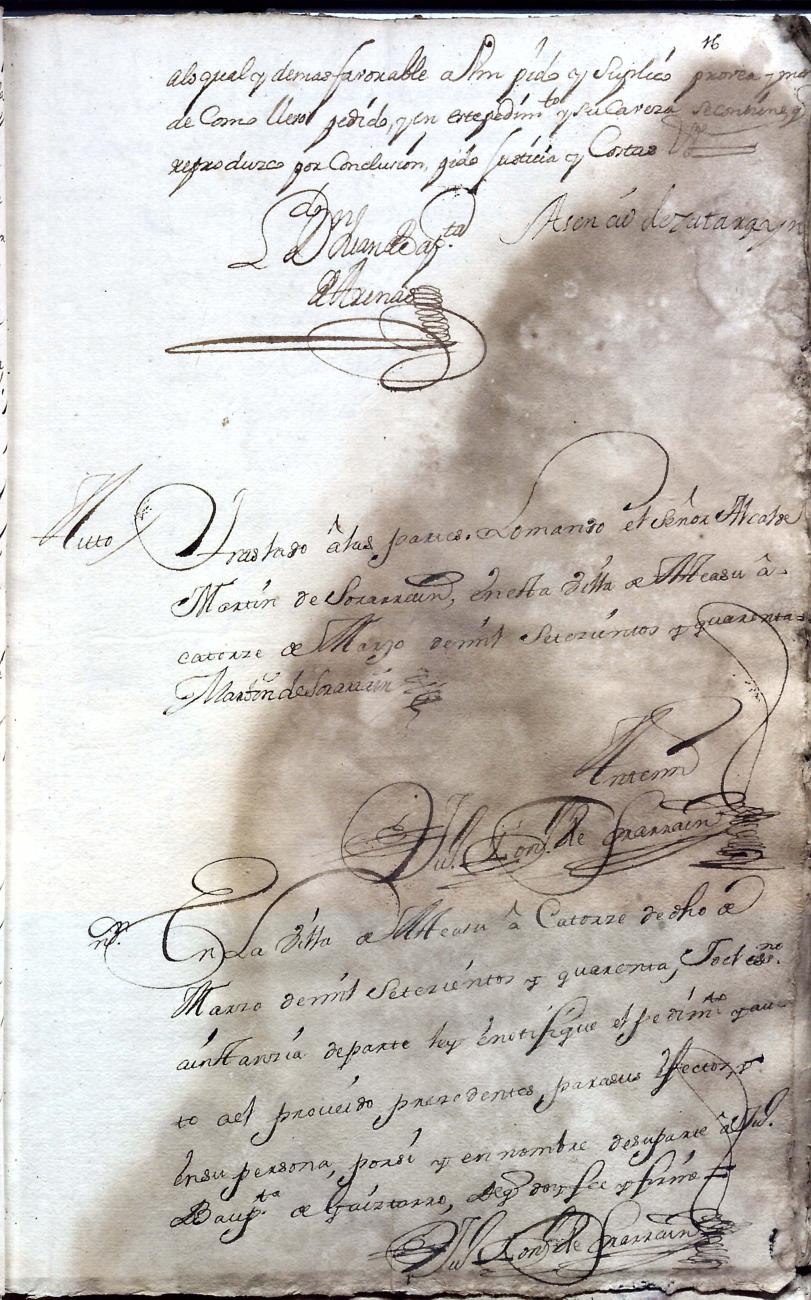 16
alo qual y demas favorable a Sm pido y Suplico provea y man
de Como llevo pedido, y en este pedim.to y su Caveza se contiene, q
reproduzco por Conclusion, pido Justicia y Costas
d.on
L.do Juan Bap.ta
de Arenas
Asencio de
Auto / Traslado â las partes. Lo mando el Señor Alcalde
Martin de Sorarrain, en esta Villa de Alteasu â
catorze de Marzo de mil Setezientos y quarenta
Martin de Sorarrain
Antemi
Ju.n Lor.zo de Sorarrain
nn. En La Villa de Alteasu â Catorze de dho de
Marzo de mil Setezientos y quarenta, Yo el es.no
a instanzia de parte ley é notifique el pedim.to y au
to del proveido precedentes, para sus efectos,
en su persona, por si y en nombre de su parte â Ju.n
Baup.ta de Gaiztarro, de q doy fee y firmé =
Ju.n Lor.zo de Sorarrain